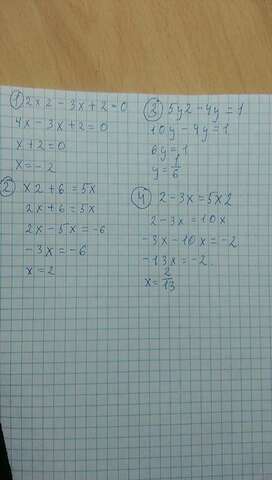 1) 2x2 - 3x + 2 = 0
4x - 3x + 2 = 0
x + 2 = 0
x = -2
2) x2 + 6 = 5x
2x + 6 = 5x
2x - 5x = -6
-3x = -6
x = 2
3) 5y2 - 4y = 1
10y - 4y = 1
6y = 1
y = 1/6
4) 2 - 3x = 5x2
2 - 3x = 10x
-3x - 10x = -2
-13x = -2
x = 2/13